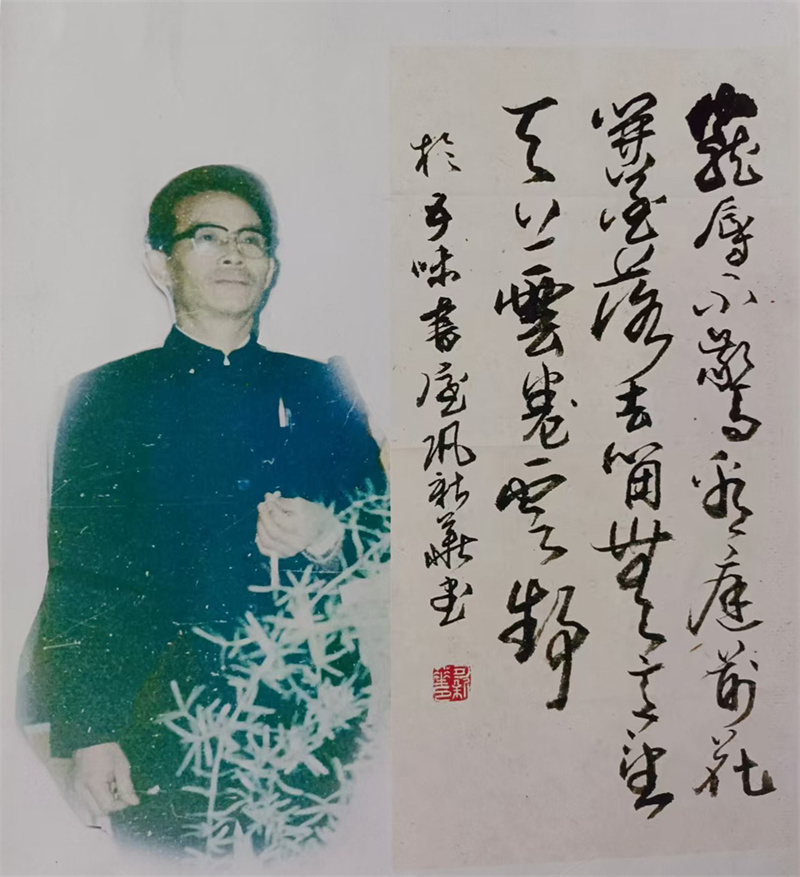 寵辱不驚看庭前花
開花落去留無意望
天上雲卷雲舒
於五味書屋巩華書